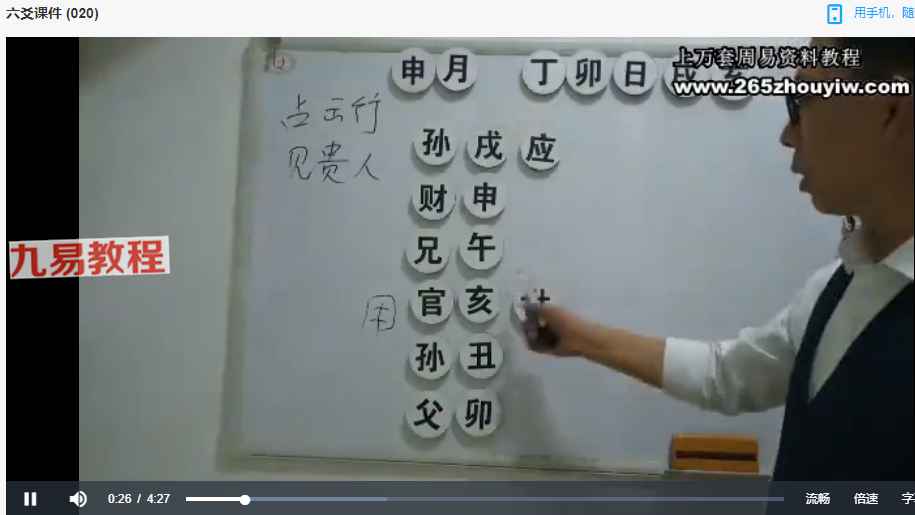 六爻课件 (020)
用手机，随
上万套周易资料教程
www.265zhouyiw.com
申月 丁卯日戌亥
占出行
见贵人
孙戌应
财申
兄午
九易教程
用 官亥世
孙丑
父卯
0:26 / 4:27 流畅 倍速 字